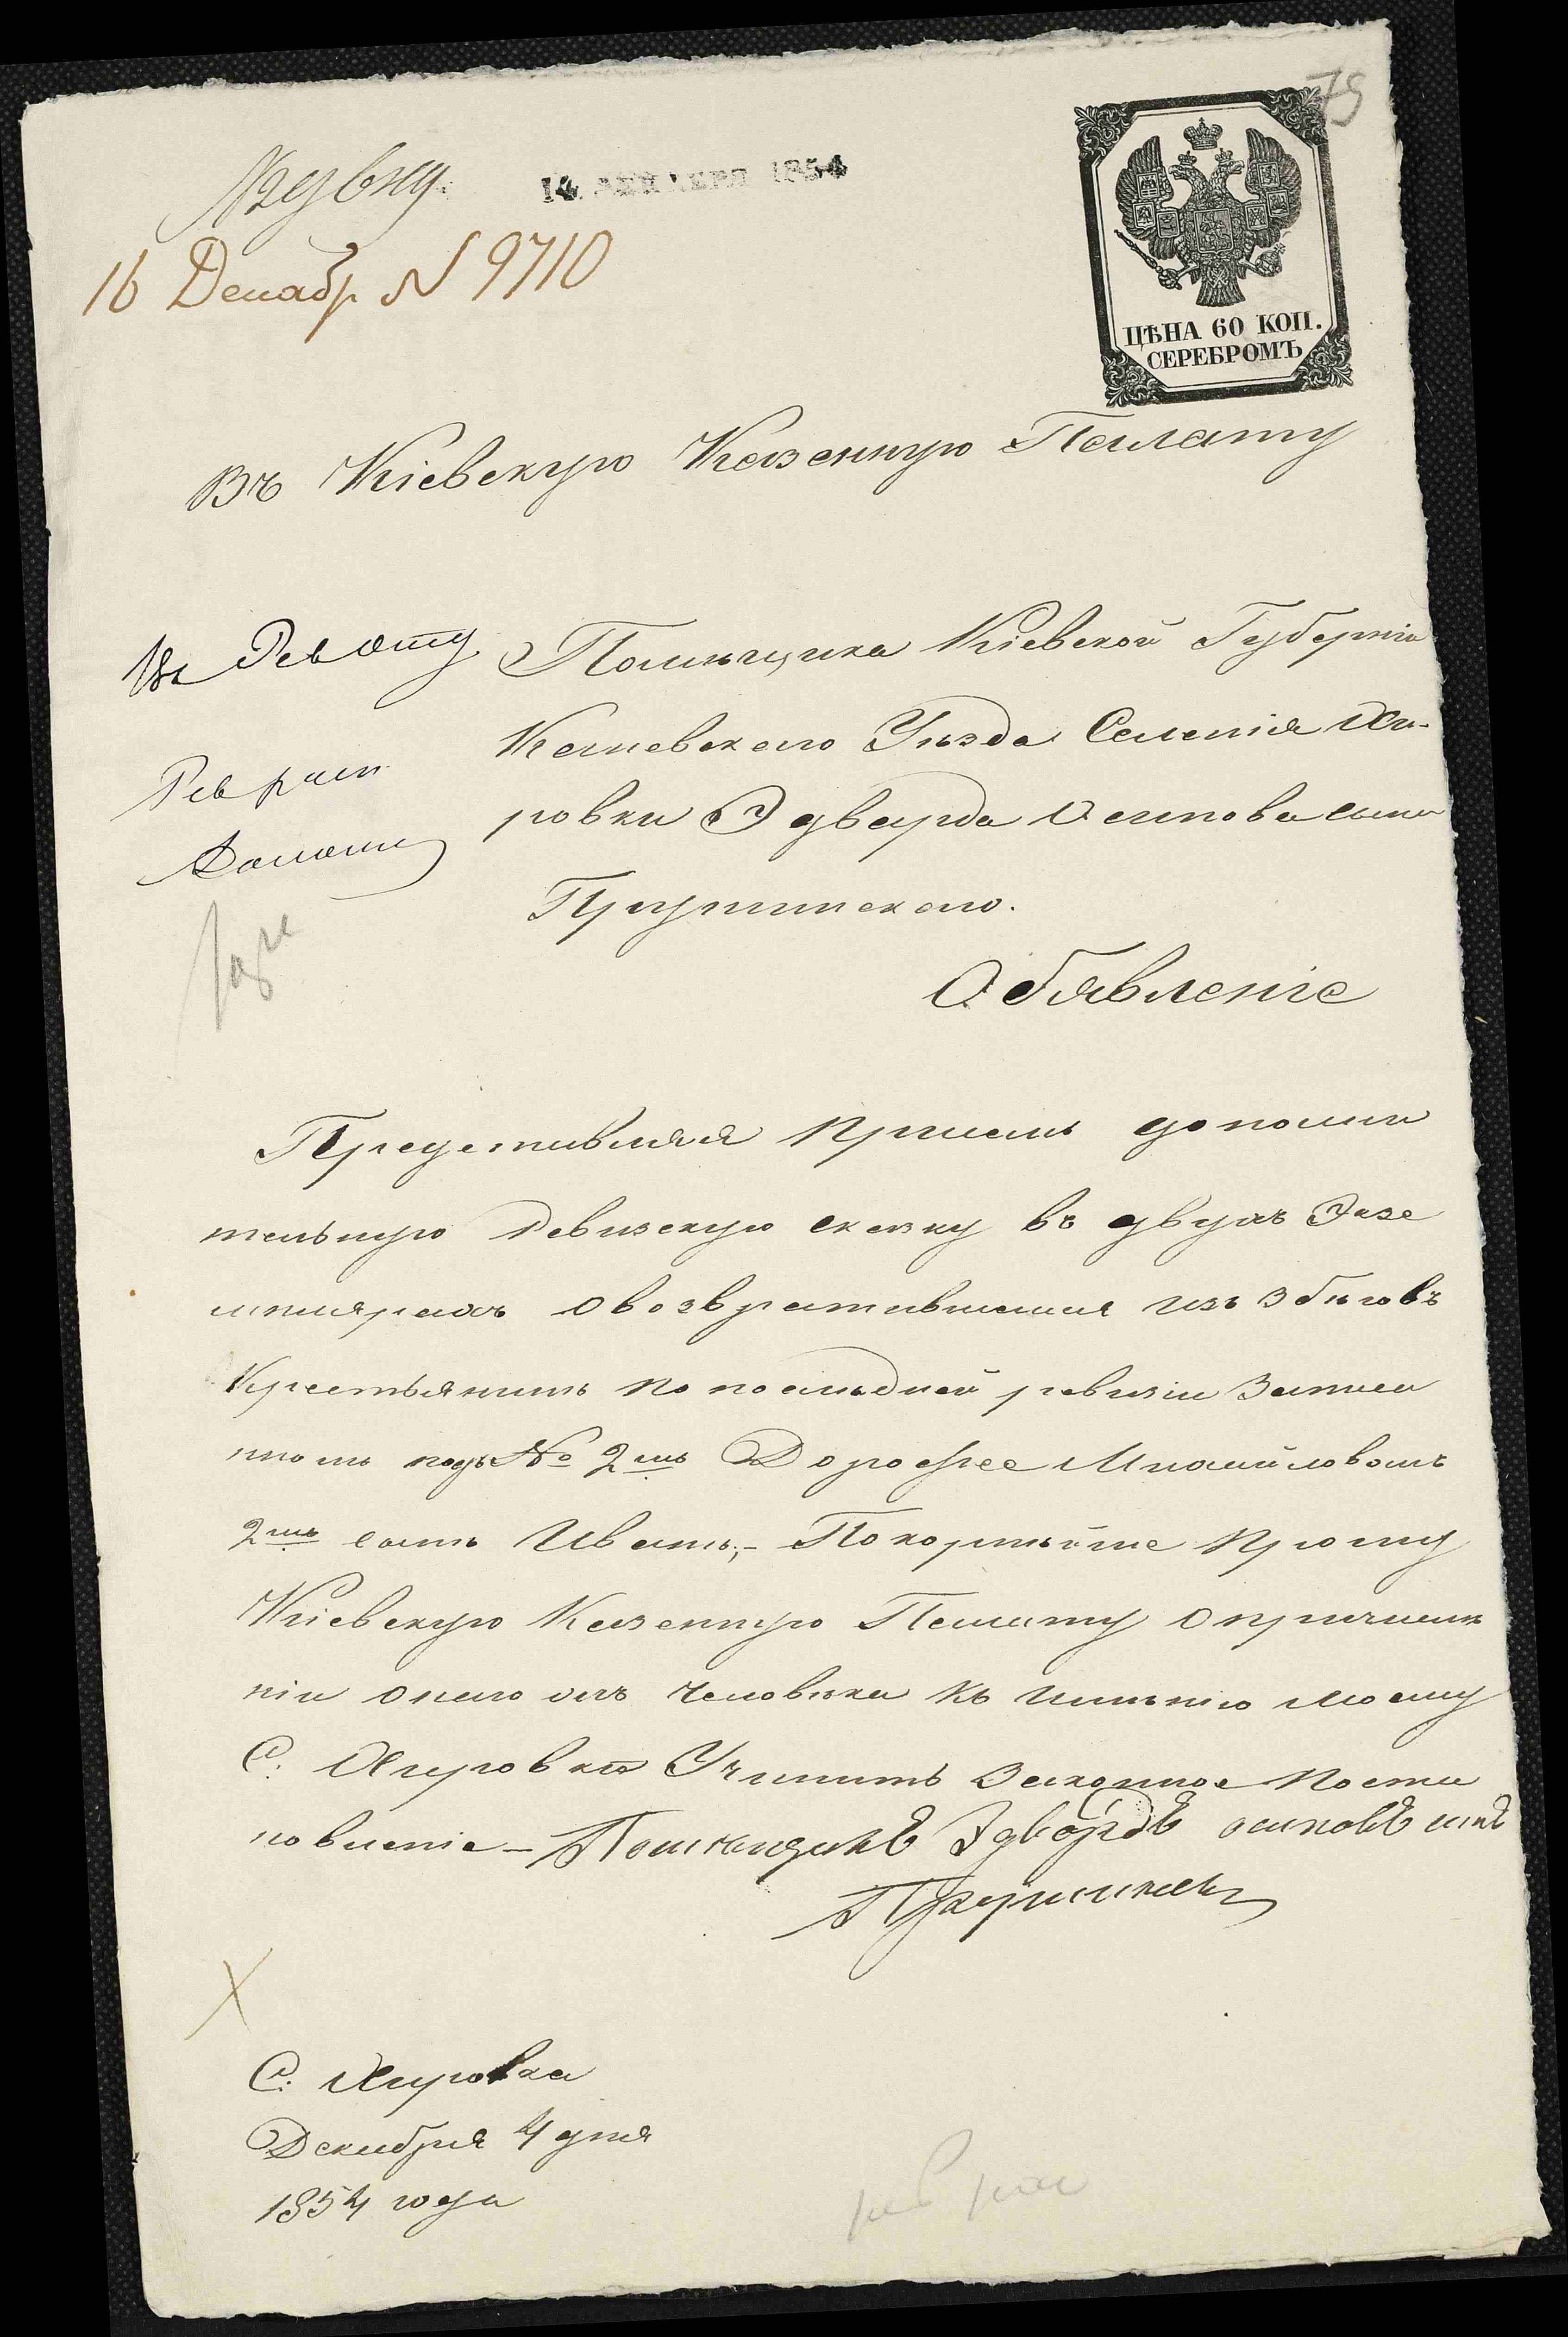 75
14 ДЕКАБРЯ 1854
16 Декабр N 9710
ЦѢНА 60 КОП.
СЕРЕБРОМЪ
Въ Кіевскую Казенную Палату
Помѣщика Кіевской Губерніи
Каневскаго Уѣзда Селенія Хи-
ровки Эдварда Осипова сына
Прушинскаго.
Обявленіе
Представляя присемъ дополни
тельную Ревизскую сказку въ двухъ Экзе
мплярахъ о возвратившемся изъ збѣговъ
Крестьянинѣ по послѣдней ревизіи Записа
нномъ подъ № 2мъ Дорофее Михайловомъ
2мъ сынѣ Иванѣ,- Покорнѣйше Прошу
Кіевскую Казенную Палату о причисле
ніи онаго человѣка къ имѣнію моему
С: Хировки Учинить Законное Поста
новленіе - Помѣщикъ Эдвардъ осиповъ сынъ
Прушинскій
С: Хировка
Декабря 4 дня
1854 года